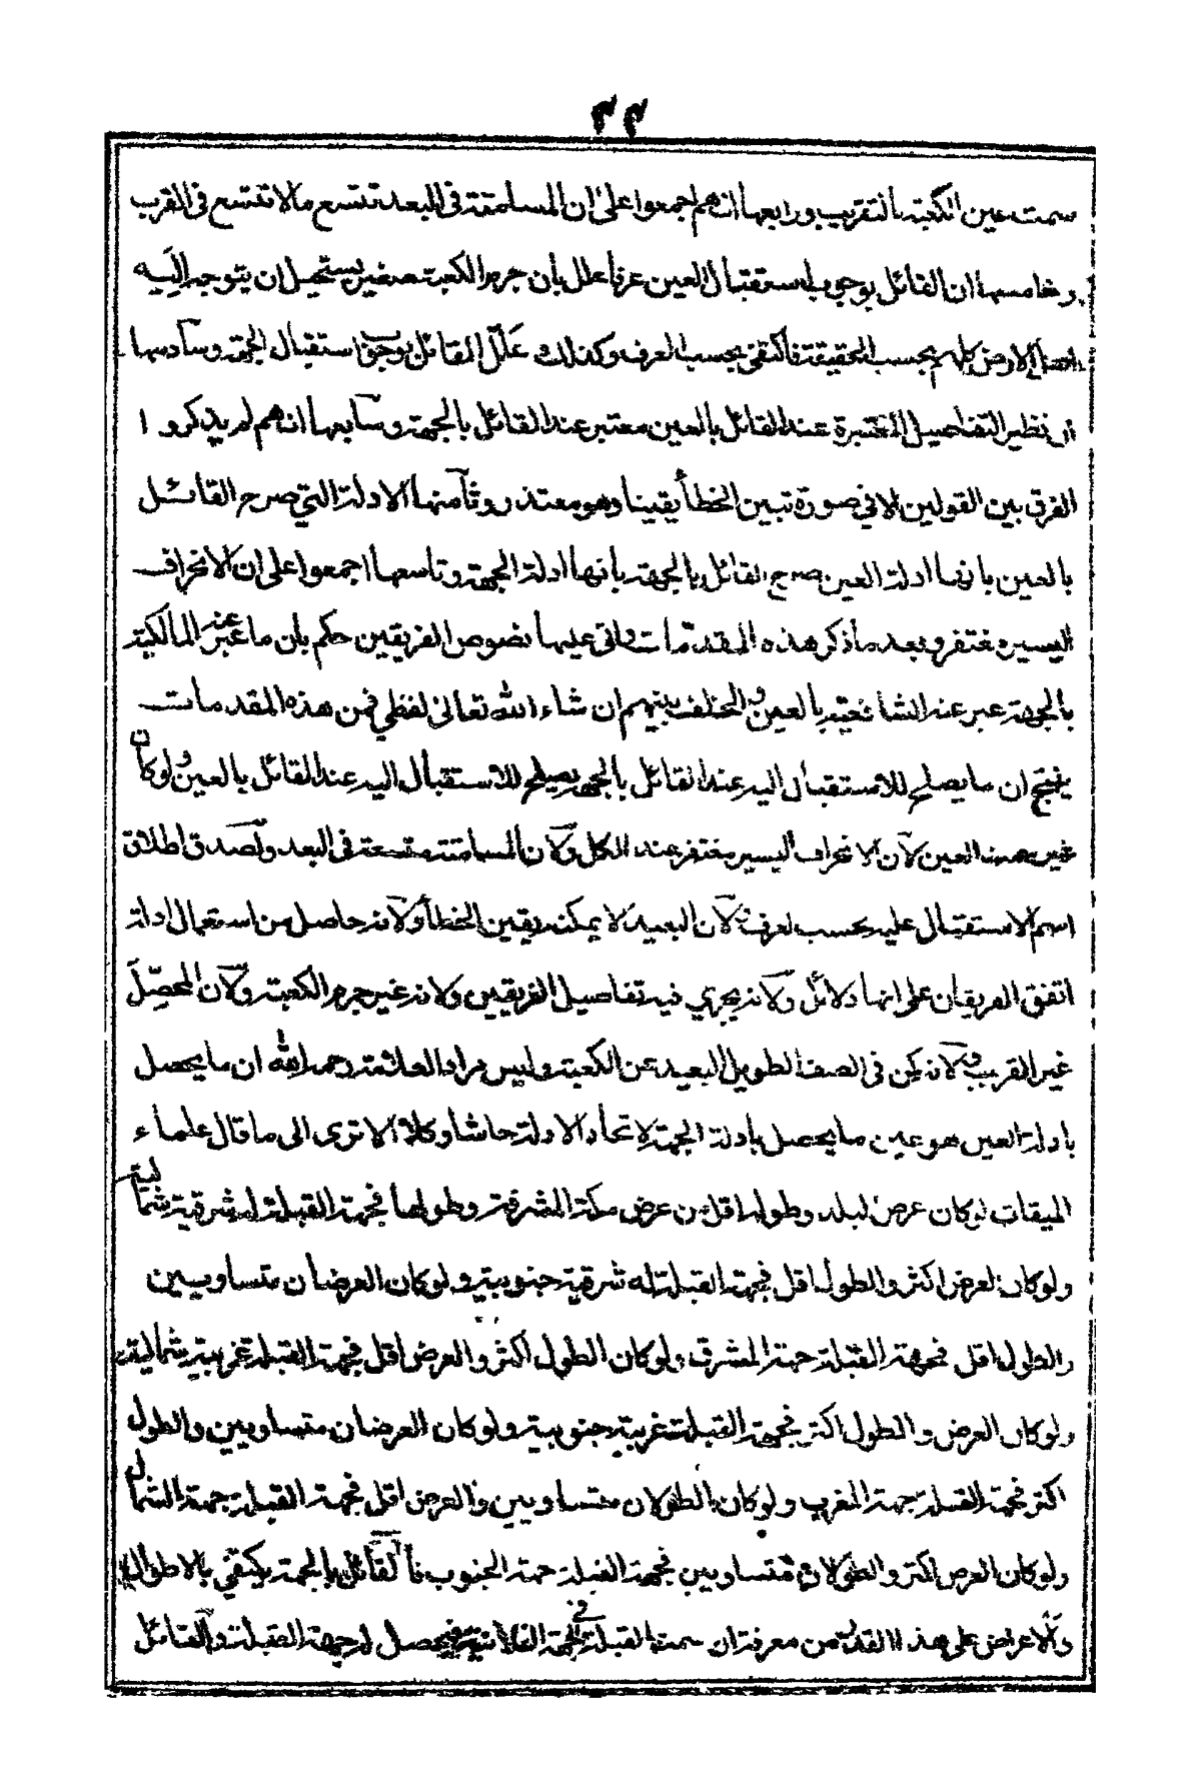 ٣٣
سمت عين الكعبة بالتقريب ورابعها انهم اجمعوا على ان المسامتة فى البعد تتسع مالا تتسع فى القرب
وخامسها ان القائل بوجوب استقبال العين عرفا علل بأن جرم الكعبة صغير يستحيل ان يتوجه اليه
اهل الارض كلهم بحسب الحقيقة فاكتفى بحسب العرف وكذلك علل القائل بوجوب استقبال الجهة وسادسها
ان نظير التفاصيل المعتبرة عند القائل بالعين معتبر عند القائل بالجهة وسابعها انهم لم يذكروا
الفرق بين القولين الا في صورة تبين الخطأ يقينا وهو معتذر وثامنها الادلة التي صرح القائل
بالعين بانها ادلة العين صرح القائل بالجهة بأنها ادلة الجهة وتاسعها اجمعوا على ان الانحراف
اليسير مغتفر وبعد ما ذكر هذه المقدمات واتى عليها نصوص الفريقين حكم بان ما عبر عنه المالكية
بالجهة عبر عنه الشافعية بالعين والخلف بينهم ان شاء الله تعالى لفظي فمن هذه المقدمات
ينتج ان ما يصلح للاستقبال اليه عند القائل بالجهة يصلح للاستقبال اليه عند القائل بالعين ولو كان
غير سمت العين لان الانحراف اليسير مغتفر عند الكل ولان المسامتة متسعة فى البعد ولصدق اطلاق
اسم الاستقبال عليه بحسب العرف لان البعيد لا يمكنه يقين الخطأ ولانه حاصل من استعمال ادلة
اتفق الفريقان على انها دلائل ولانه يجري فيه تفاصيل الفريقين ولانه غير جرم الكعبة ولان المحصل
غير القريب ولانه يكن فى الصف الطويل البعيد عن الكعبة وليس مراد العلامة رحمه الله ان ما يحصل
بادلة العين هو عين ما يحصل بادلة الجهة لاتحاد الادلة حاشا وكلا الا ترى الى ما قال علماء
الميقات لو كان عرض البلد وطوله اقل من عرض مكة المشرفة وطولها فجهة القبلة له شرقية شمالية
ولو كان العرض اكثر والطول اقل فجهة القبلة له شرقية جنوبية ولو كان العرضان متساويين
والطول اقل فجهة القبلة جهة المشرق ولو كان الطول اكثر والعرض اقل فجهة القبلة غربية شمالية
ولو كان العرض والطول اكثر فجهة القبلة غربية جنوبية ولو كان العرضان متساويين والطول
اكثر فجهة القبلة جهة المغرب ولو كان الطولان متساويين والعرض اقل فجهة القبلة جهة الشمال
ولو كان العرض اكثر والطولان متساويين فجهة القبلة جهة الجنوب فالقائل بالجهة يكتفي بالاطوال
والاعراض على هذا القدر من معرفة ان سمت القبلة في الجهة الفلانية فيحصل له جهة القبلة والقائل